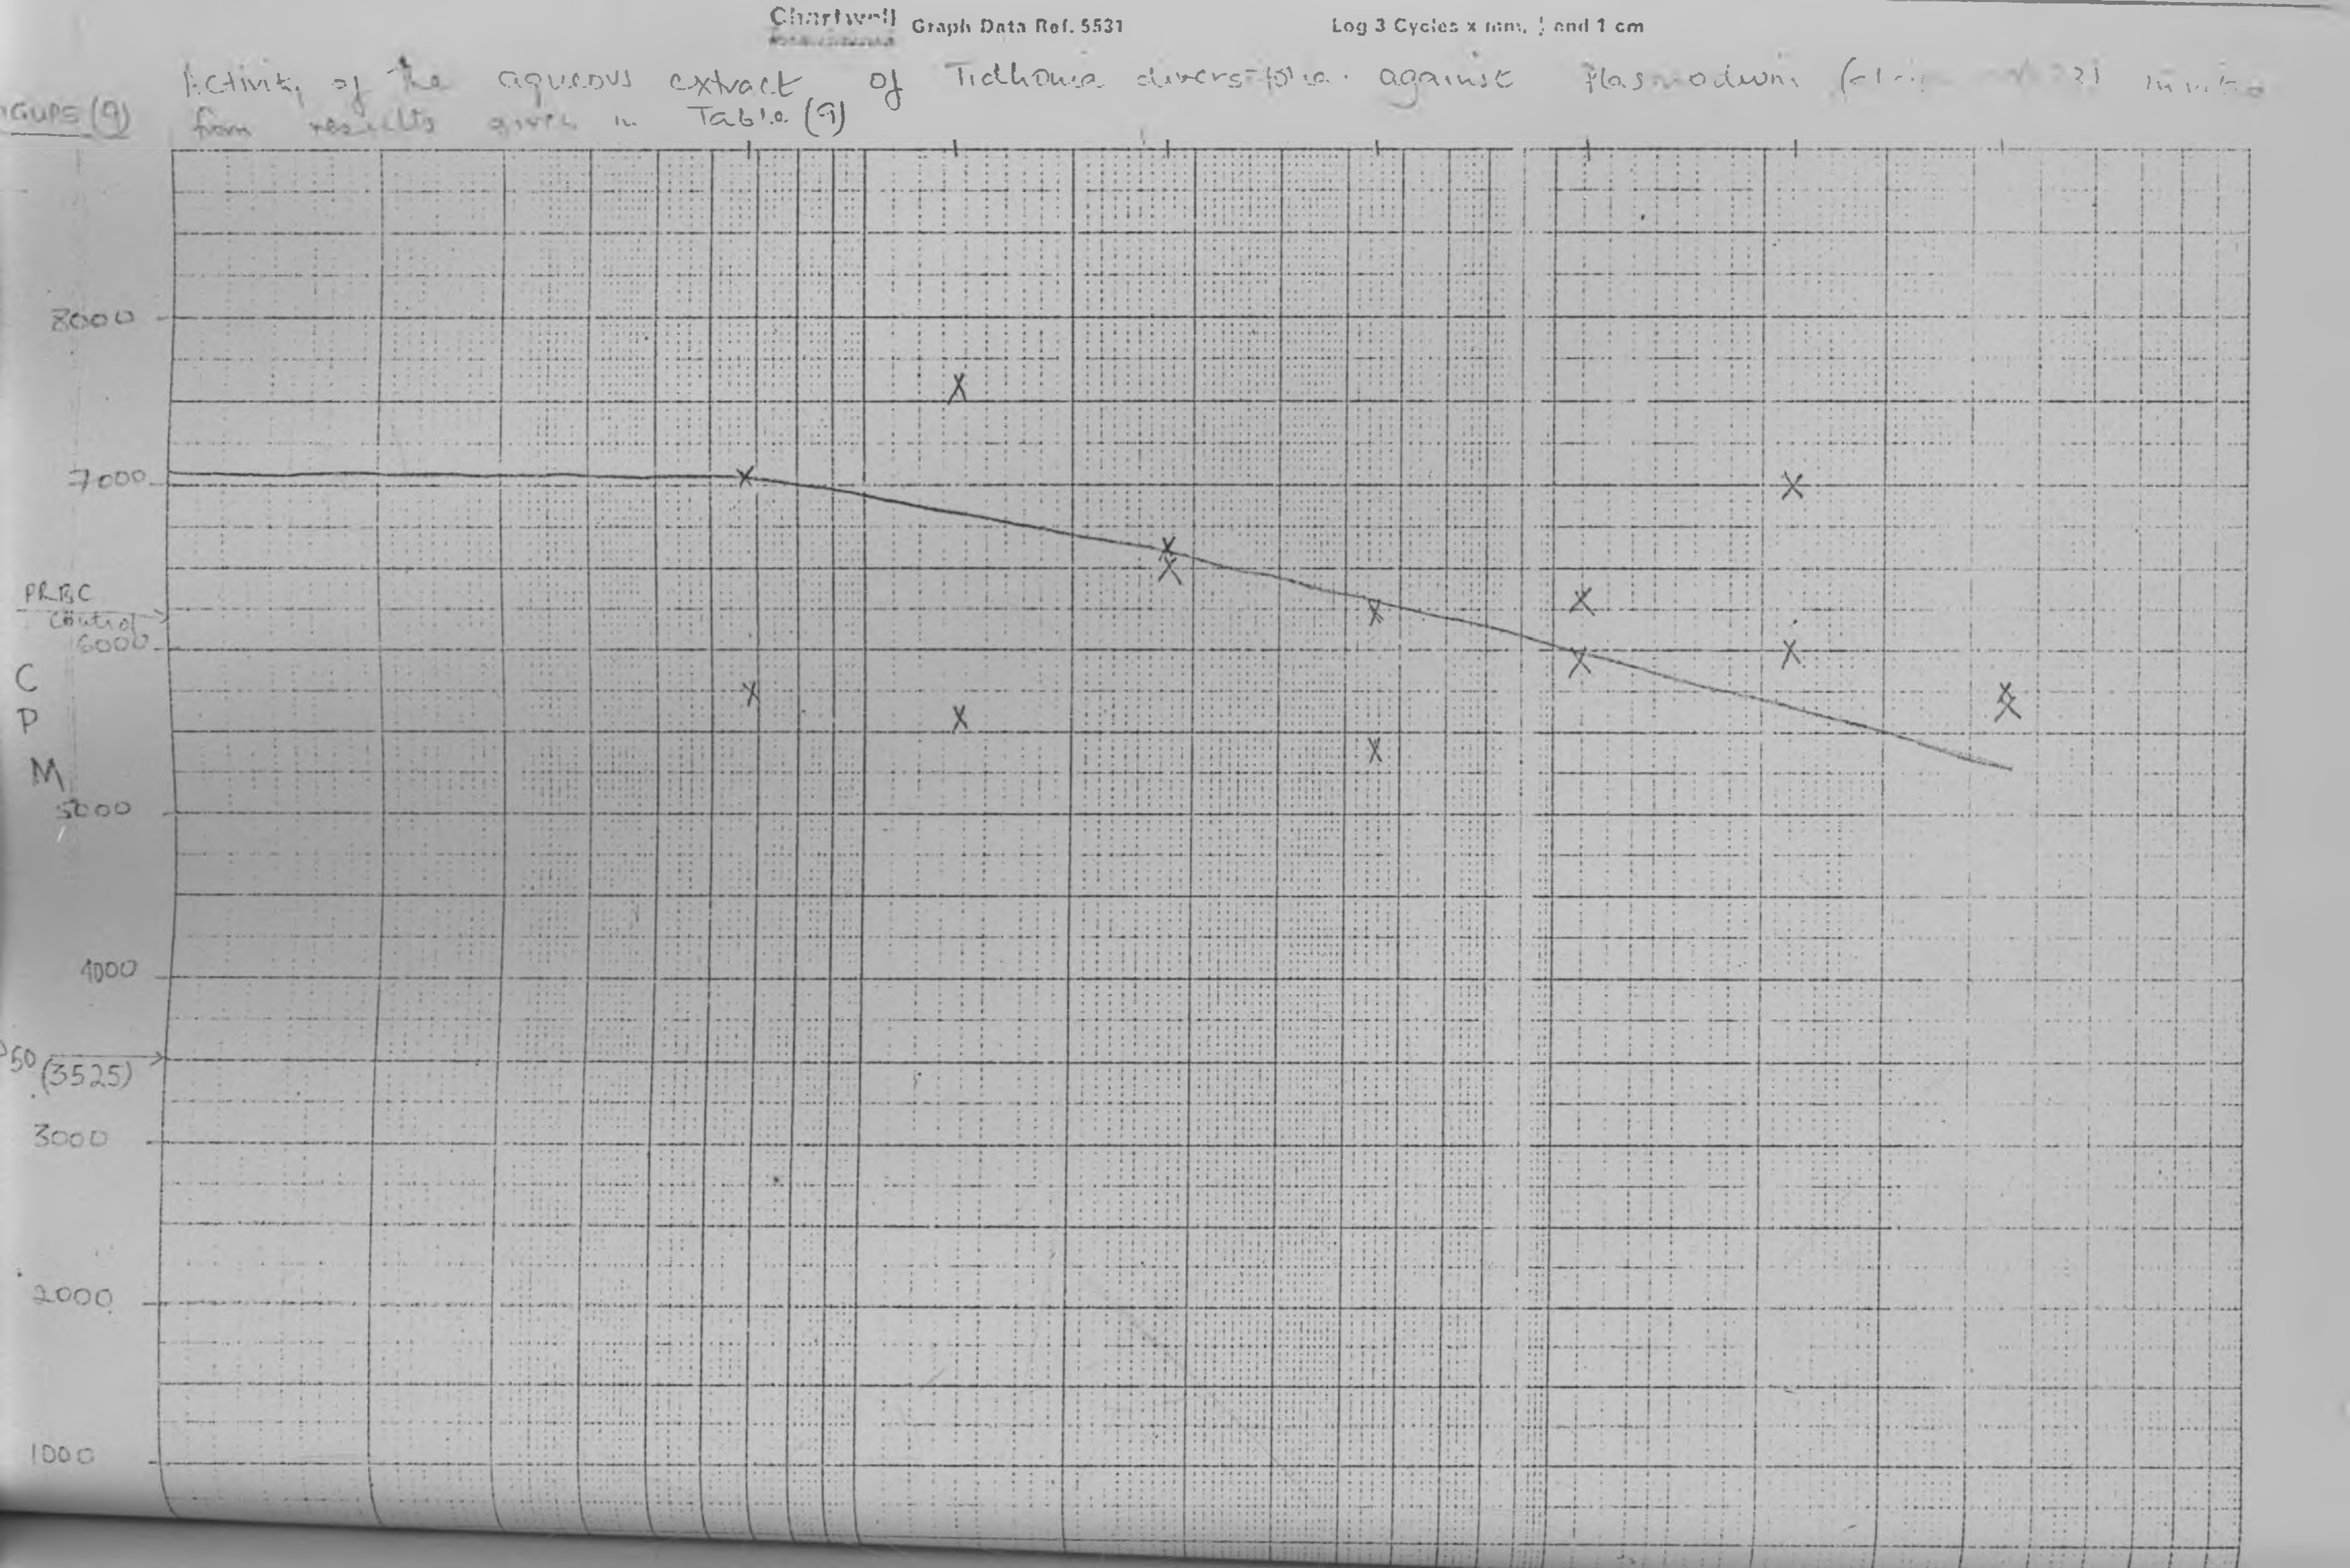 Chartwell Graph Data Ref. 5531 Log 3 Cycles x mm, ½ and 1 cm
Activity of the aqueous extract of Tidhonia diversifolia against Plasmodium
IGURE (9) from results given in Table (9)
8000
7000
PRBC
control
6000
C
P
M
5000
4000
50 (3525)
3000
2000
1000